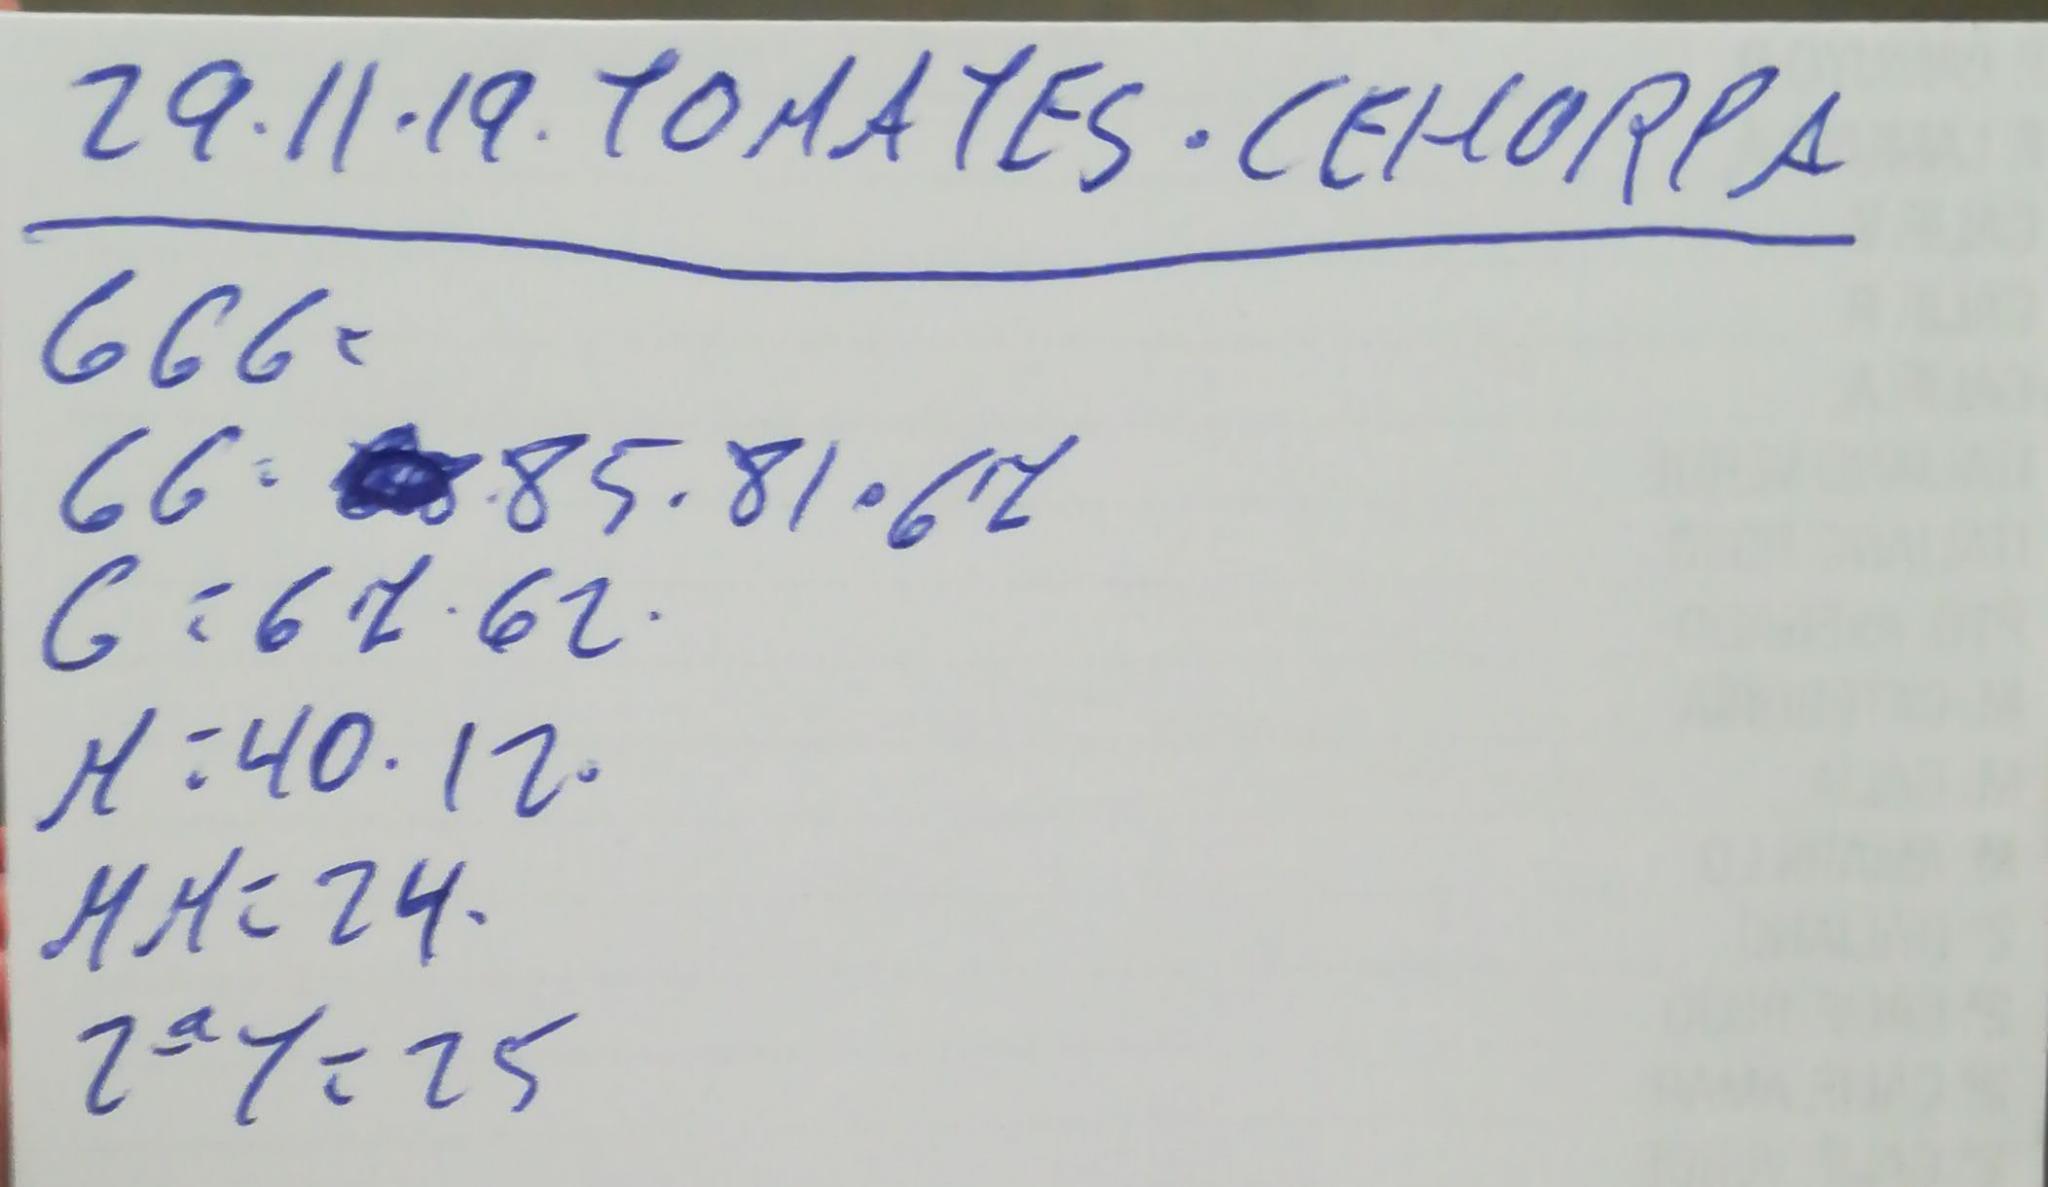 29.11.19. TOMATES. CEHORPA
GGG=
GG= 85.81.67
G=67.62.
M=40.12.
MM=24.
2ªT=25